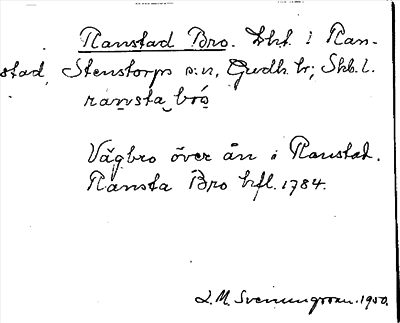 Ranstad Bro. bbt. i Ran-
stad, Stenstorps sn, Gudh. hd; Skb. l.
ransta bró
Vägbro över ån i Ranstad.
Ransta Bro hfl. 1784.
L. M. Svenungsson. 1950.